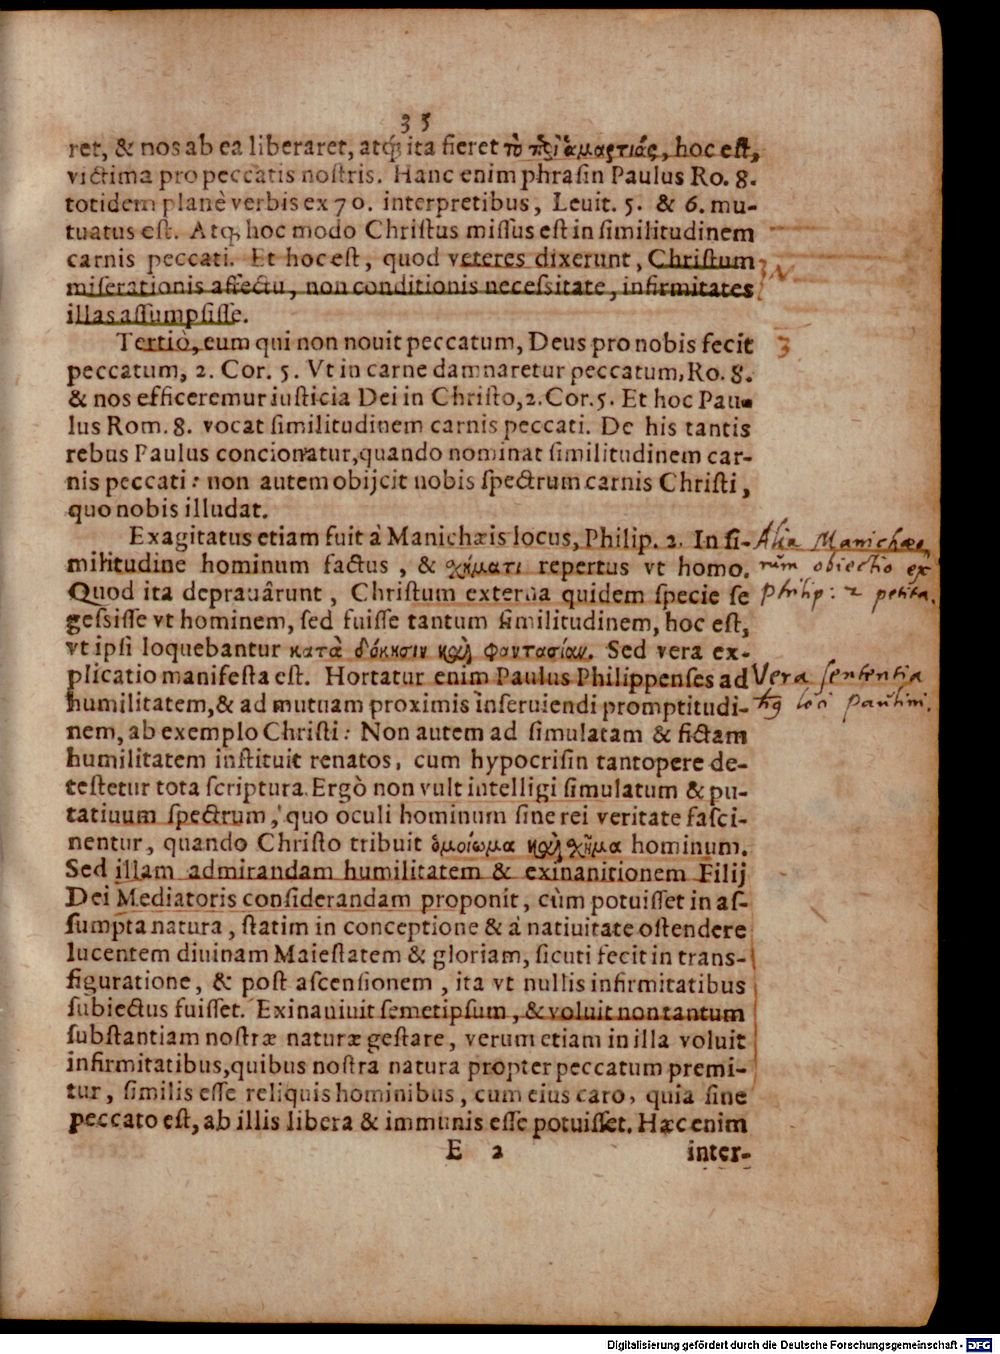 35
ret, & nos ab ea liberaret, atq; ita fieret τὸ περὶ ἁμαρτίας, hoc eſt,
victima pro peccatis noſtris. Hanc enim phraſin Paulus Ro. 8.
totidem planè verbis ex 70. interpretibus, Leuit. 5. & 6. mu-
tuatus eſt. Atq; hoc modo Chriſtus miſſus eſt in ſimilitudinem
carnis peccati. Et hoc eſt, quod veteres dixerunt, Chriſtum
miſerationis affectu, non conditionis neceſsitate, infirmitates
illas aſſumpſiſſe.
Tertiò, eum qui non nouit peccatum, Deus pro nobis fecit
3
peccatum, 2. Cor. 5. Vt in carne damnaretur peccatum, Ro. 8.
& nos efficeremur iuſticia Dei in Chriſto, 2. Cor. 5. Et hoc Pau-
lus Rom. 8. vocat ſimilitudinem carnis peccati. De his tantis
rebus Paulus concionatur, quando nominat ſimilitudinem car-
nis peccati: non autem obijcit nobis ſpectrum carnis Chriſti,
quo nobis illudat.
Exagitatus etiam fuit à Manichæis locus, Philip. 2. In ſi-
militudine hominum factus, & ϛχήματι repertus vt homo.
Quod ita deprauârunt, Chriſtum externa quidem ſpecie ſe
geſsiſſe vt hominem, ſed fuiſſe tantum ſimilitudinem, hoc eſt,
vt ipſi loquebantur κατὰ δόκησιν καὶ φαντασίαν. Sed vera ex-
plicatio manifeſta eſt. Hortatur enim Paulus Philippenſes ad
humilitatem, & ad mutuam proximis inſeruiendi promptitudi-
nem, ab exemplo Chriſti: Non autem ad ſimulatam & fictam
humilitatem inſtituit renatos, cum hypocriſin tantopere de-
teſtetur tota ſcriptura. Ergò non vult intelligi ſimulatum & pu-
tatiuum ſpectrum, quo oculi hominum ſine rei veritate faſci-
nentur, quando Chriſto tribuit ὁμοίωμα καὶ ϛχῆμα hominum.
Sed illam admirandam humilitatem & exinanitionem Filij
Dei Mediatoris conſiderandam proponit, cùm potuiſſet in aſ-
ſumpta natura, ſtatim in conceptione & à natiuitate oſtendere
lucentem diuinam Maieſtatem & gloriam, ſicuti fecit in trans-
figuratione, & poſt aſcenſionem, ita vt nullis infirmitatibus
ſubiectus fuiſſet. Exinaniuit ſemetipſum, & voluit non tantum
ſubſtantiam noſtræ naturæ geſtare, verum etiam in illa voluit
infirmitatibus, quibus noſtra natura propter peccatum premi-
tur, ſimilis eſſe reliquis hominibus, cum eius caro, quia ſine
peccato eſt, ab illis libera & immunis eſſe potuiſſet. Hæc enim
E 2 inter-
Alia Manichæo
rum obiectio ex
Philip: 2 petita.
Vera ſententia
loci Paulini.
Digitalisierung gefördert durch die Deutsche Forschungsgemeinschaft - DFG